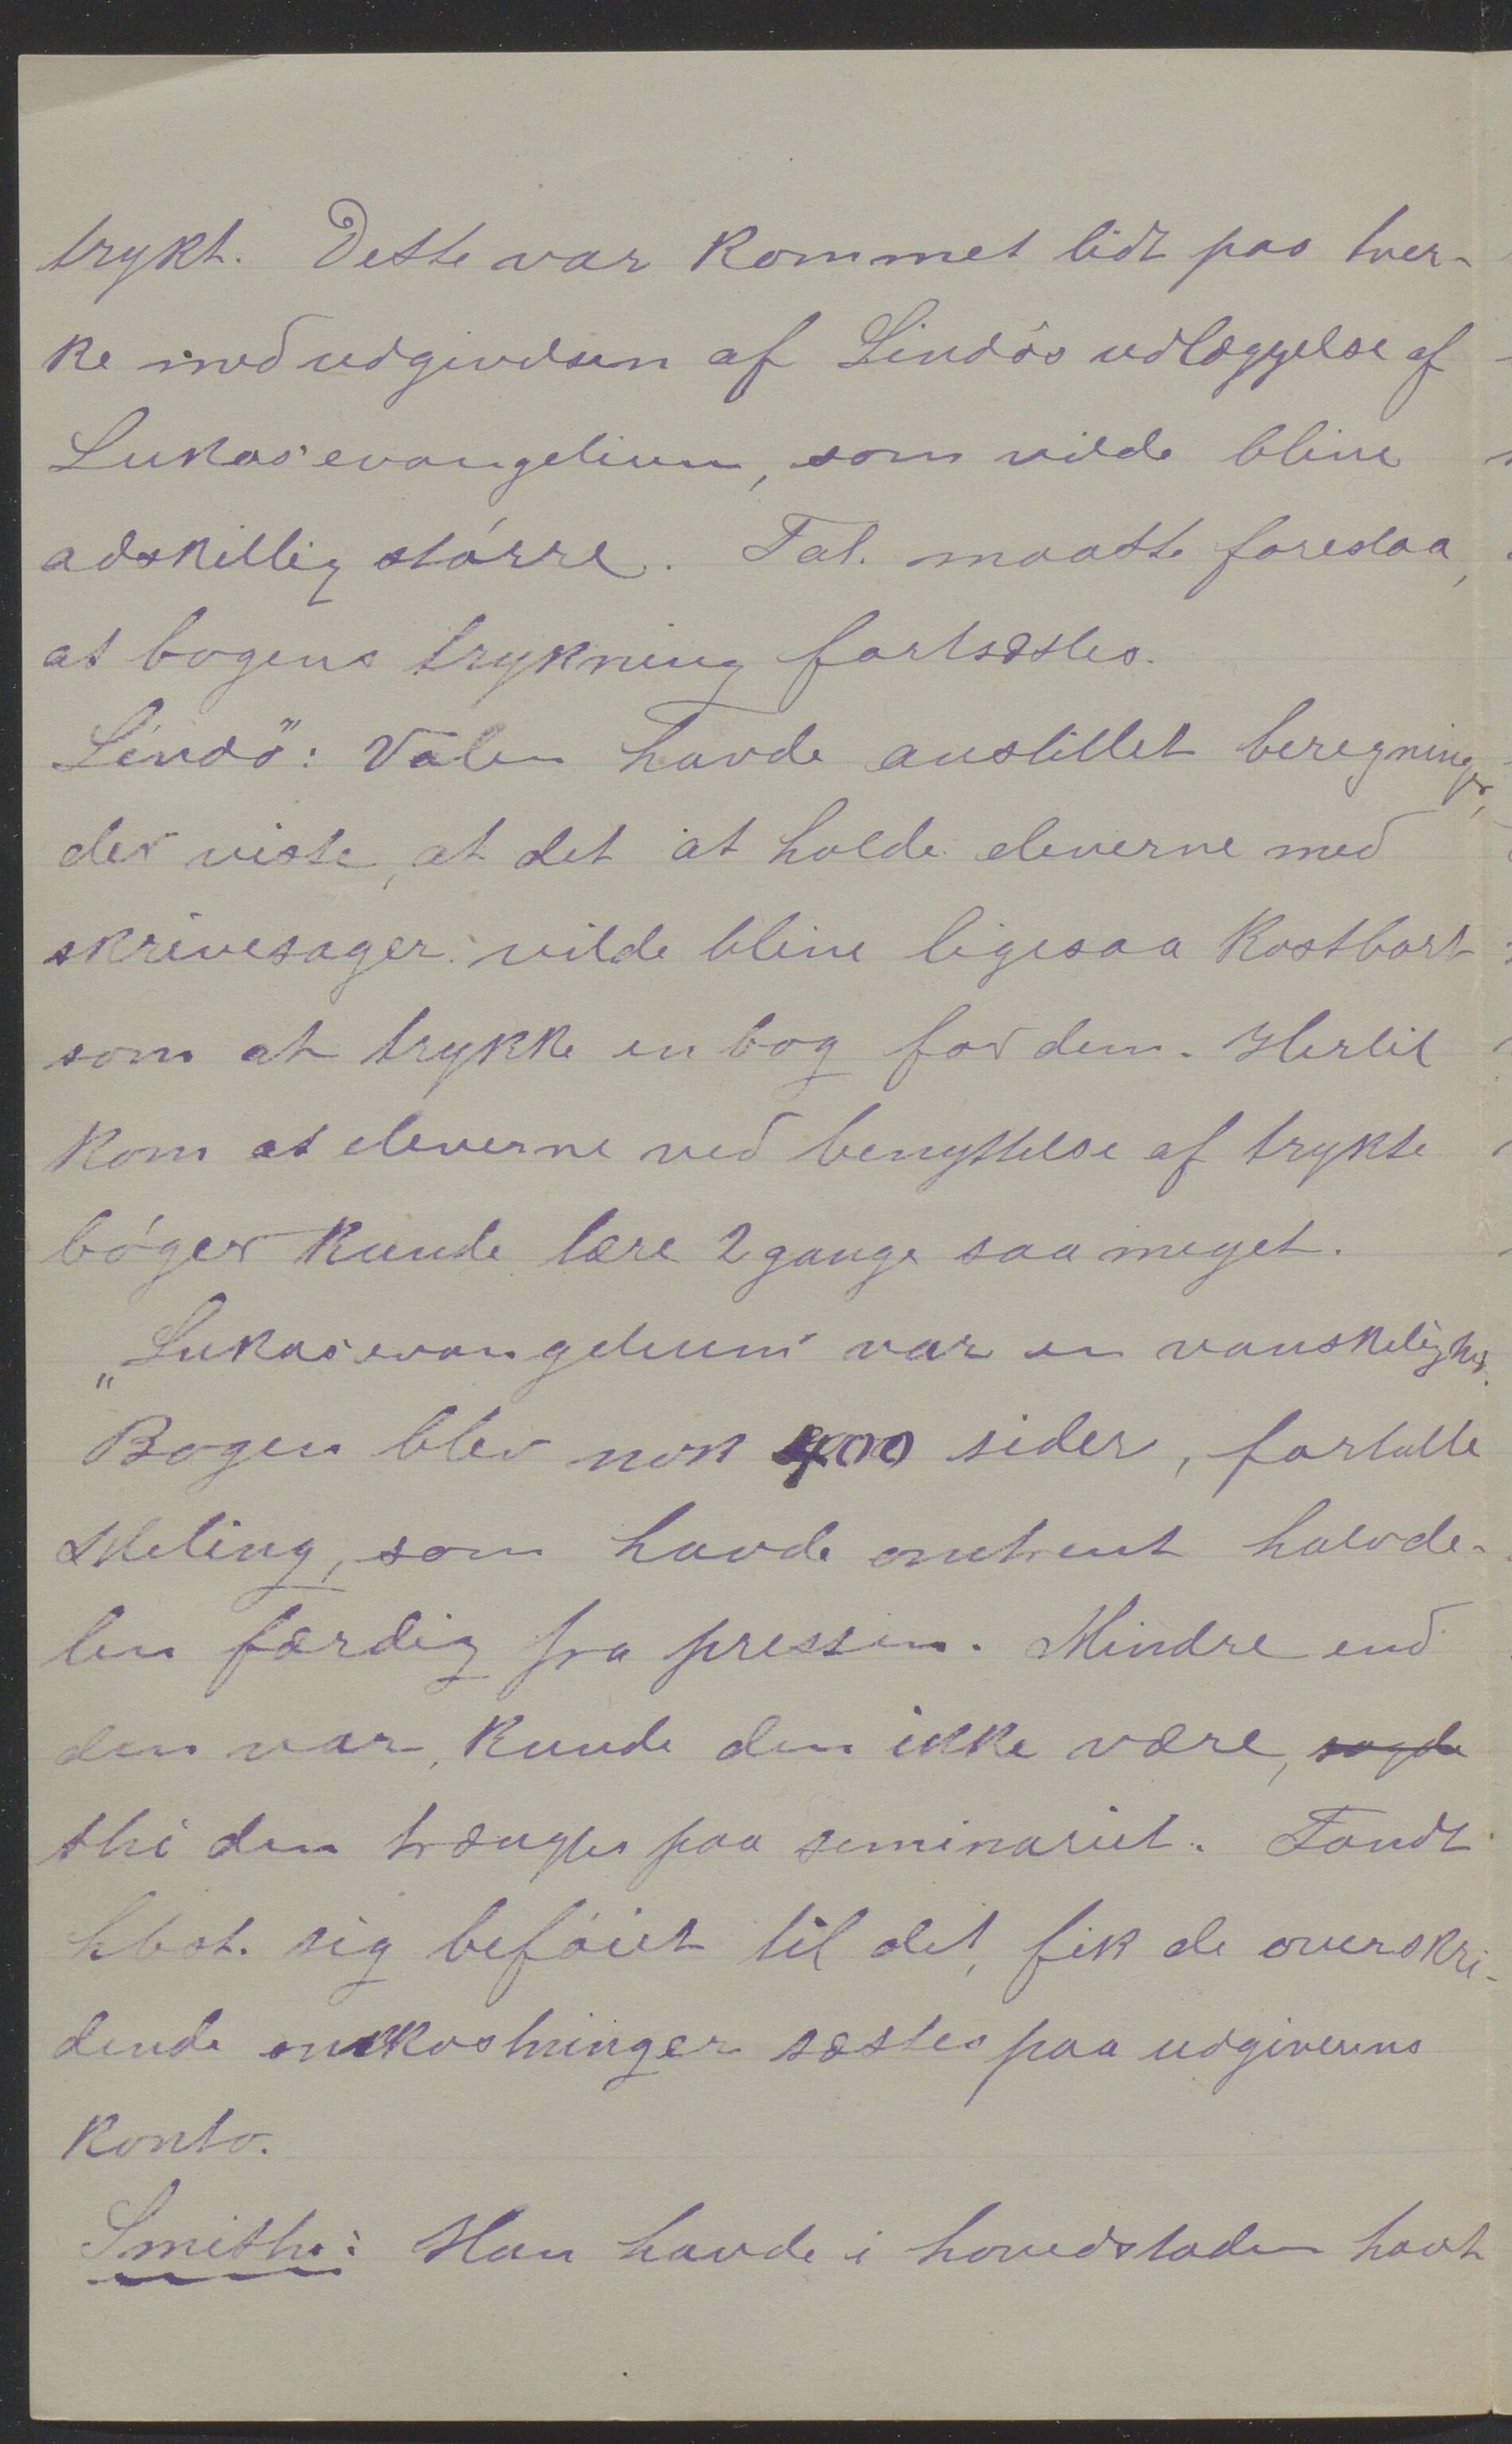 trykt. Dette var kommet lidt paa tver-
ke med udgivelsen af Lindös udlæggelse af
Lukasevangelium, som vilde blive
adskillig större. Tal. maatte foreslaa,
at bogens trykning fortsættes.
Lindö: Valen havde anstillet beregninger,
der viste, at det at holde eleverne med
skrivesager vilde blive ligesaa kostbart
som at trykke en bog for dem. Hertil
kom at eleverne ved benyttelse af trykte
böger kunde lære 2 gange saa meget.
„Lukasevangelium" var en vanskelighed.
Bogen blev nok 400 sider, fortalte
Meling, som havde omtrent halvde-
len færdig fra pressen. Mindre end
den var, kunde den ikke være, sagde
thi den trænges paa seminariet. Fandt
hbst. sig beföiet til det, fik de overskri-
dende omkostninger sættes paa udgiverens
konto.
Smith: Han havde i hovedstaden havt